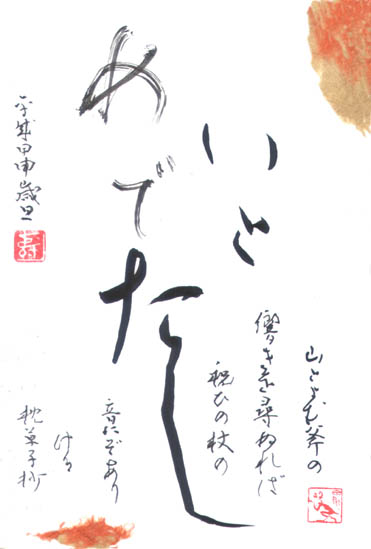 いと
めでたし
山とよむ斧の
響きを尋ぬれば
祝ひの杖の
音にぞあり
ける
枕草子抄
平成甲申歳旦
寿